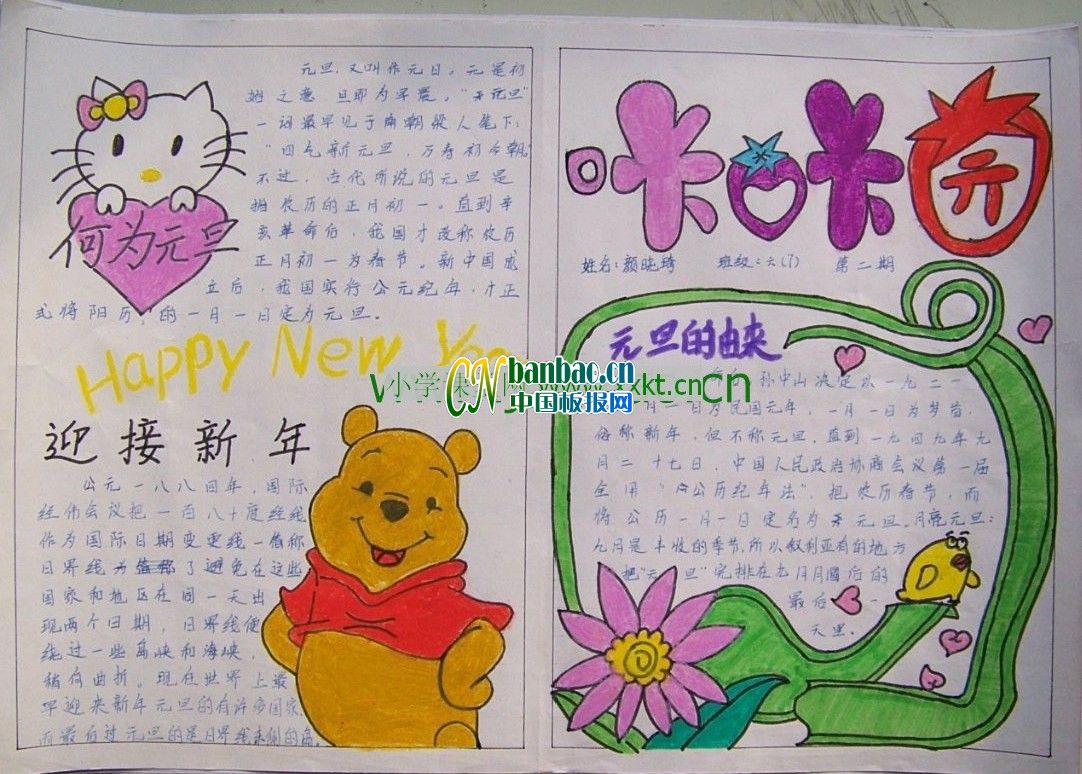 何为元旦
元旦,又叫作元日。元是初
始之意 旦即为早晨。"元旦"
一词最早见于南朝 人笔下:
"四气新元旦,万寿初今朝"
不过,古代所说的元旦是
指农历的正月初一。直到辛
亥革命后,我国才改称农历
正月初一为春节。新中国成
立后,我国实行公元纪年,才正
式将阳历 的一月一日定为元旦。
Happy New
迎接新年
公元一八八四年,国际
经伟会议把一百八十度经线
作为国际日期变更线一俗称
日界线 了避免在这些
国家和地区在同一天出
现两个日期,日界线便
绕过一些岛峡和海峡,
稍有曲折。现在世界上最
早迎来新年元旦的有许多国家,
而最后过元旦的是日界线东侧的岛。
咔口卡园
姓名:颜晓琦 班级:六(7) 第二期
元旦的由来
孙中山决定以一九二一
月一日为民国元年,一月一日为岁首,
俗称新年,但不称元旦,直到一九四九年九
月二十七日,中国人民政府协商会议第一届
全 用"公历纪年法",把农历春节,而
将公历一月一日定名为元旦。月亮元旦:
九月是丰收的季节,所以叙利亚有的地方
把"元旦"安排在九月月圆后的
最后 一
天里。
小学课
www. xxkt.cn
CN
banbao.cn
中国板报网